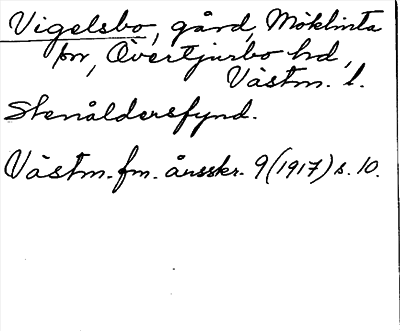 Vigelsbo, gård, Möklinta
sn, Övertjurbo hd,
Västm. l.
Stenåldersfynd.
Västm. fm. årsskr. 9 (1917) s. 10.